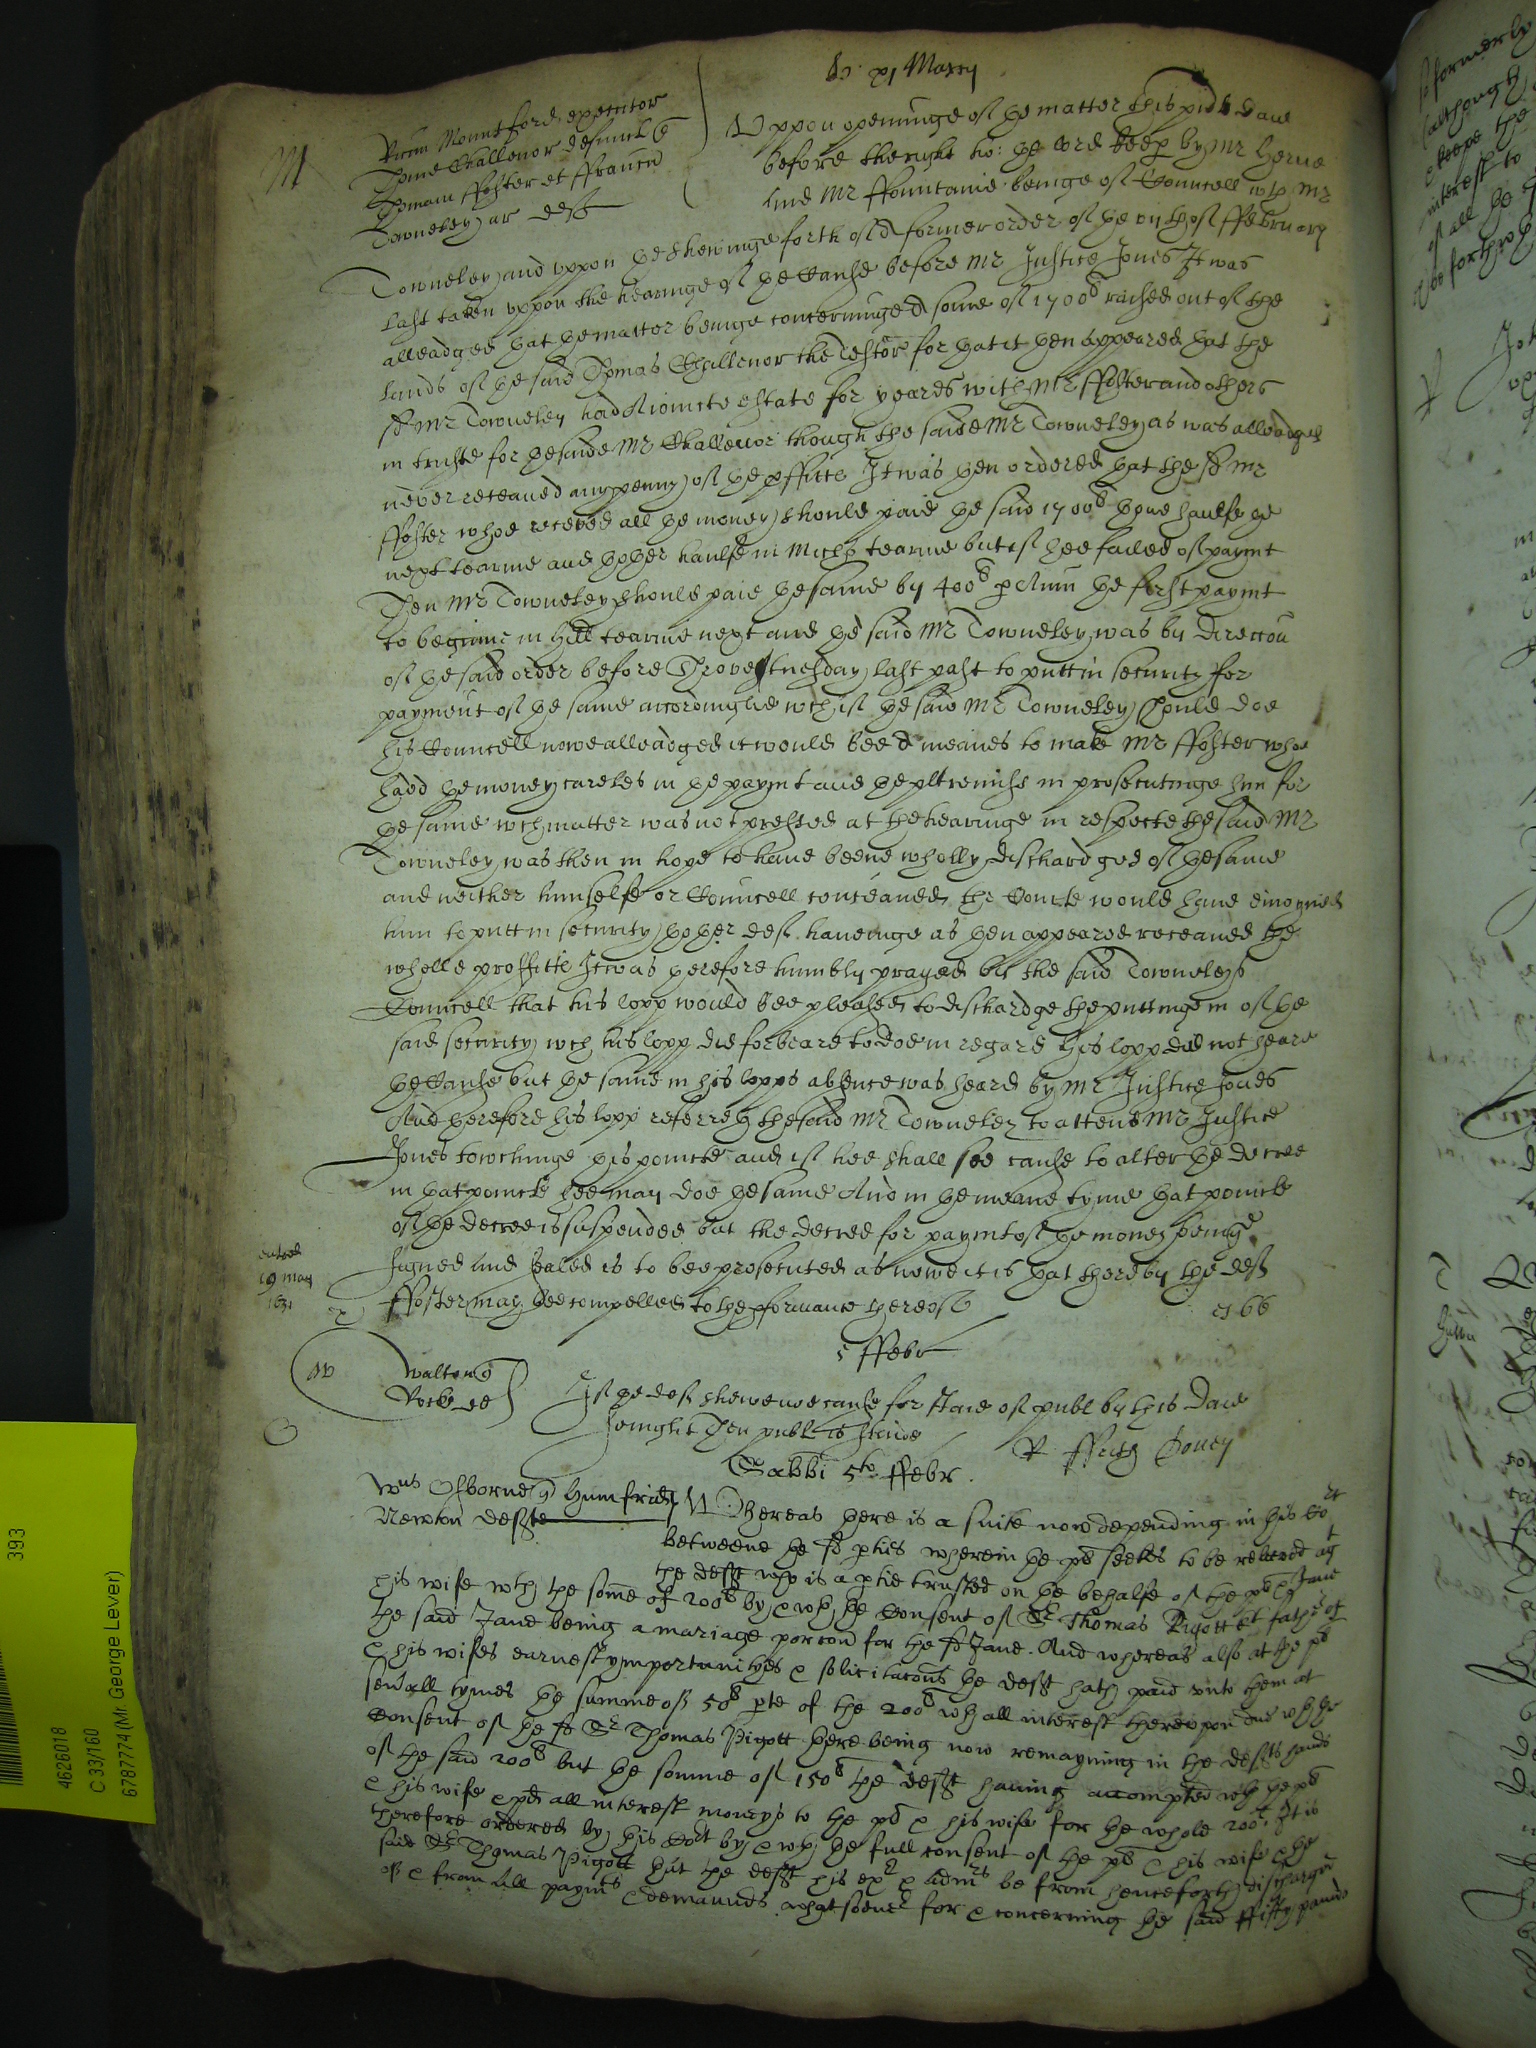 D. xj Marcij
M
Ricum Mountford executor
Thome Challenor defunct q
Thomam ffoster et ffranc
Towneley ar deft
Uppon openinge of the matter this pnte daie
before the right ho: the lord keep by Mr Herne
and Mr ffountaine beinge of Councell wth Mr
Towneley and uppon the shewinge forth of a former order of the vijth of ffebruary
last taken uppon the hearinge of the Cause before Mr Justice Jones It was
alleadged that the matter beinge concerninge a some of 1700l raised out of the
lands of the said Thomas Challenor the Testor for that it then appeared that the
sd Mr Towneley had a ioincte estate for yeares with Mr ffoster and others
in truste for the saide Mr Challenor though the saide Mr Towneley as was alleadged
never receaved any penny of the pffitte It was then ordered that the sd Mr
ffoster whoe receved all the money should paie the said 1700l thone haulfe the
next tearme and thother haulfe in Mich tearme but if hee failed of paymt
Then Mr Towneley should paie the same by 400l p Anm the first paymt
to beginne in Hill tearme next and the said Mr Towneley was by direccon
of the said order before Shrove tuesday last past to putt in security for
payment of the same accordinglie wch if the said Mr Towneley should doe
his Councell nowe alleadged it would bee a meanes to make Mr ffoster whoe
hadd the money careles in the paymt and the plt remisse in prosecutinge him for
the same wch matter was not pressed at the hearinge in respecte the said Mr
Towneley was then in hope to have beene wholly dischardged of the same
and neither himselfe or Councell conceaved the Courte would have enioyned
him to putt in security thother deft haveinge as then appeared receaved the
wholle proffitte It was therefore humbly prayed by the said Towneleys
Councell that his lopp would bee pleased to dischardge the puttinge in of the
said security wch his lopp did forbeare to doe in regard his lopp did not heare
the Cause but the same in his lopps absence was heard by Mr Justice Jones
And therefore his lopp referreth the said Mr Towneley to attend Mr Justice
Jones towchinge this poincte and if hee shall see cause to alter the decree
in that poincte hee may doe the same And in the meane tyme that poincte
of the decree is suspended but the decree for paymt of the money beinge
signed and sealed is to bee prosecuted as nowe it is that thereby the deft
ffoster may bee compelled to the pformance thereof
entred
19 may
1631
5 ffebr
W
Walton q
Rock de
If the deft shewe noe cause for staie of publ by this daie
sennight Then publ is
Sabbi 5to ffebr.
Wm Osborne q Humfridu
Newton deft
Whereas there is a suite now depending in this Cort
betweene the sd pties wherein the pl seekes to be releeved agt
the deft who is a ptie trusted on the behalfe of the pl & Jane
his wife wth the some of 200l by & wth the Consent of Sr Thomas Pigott kt father of
the said Jane being a mariage porcon for the sd Jane. And whereas also at the pl
& his wifes earnest ymportunityes & solicitacons the deft hath paid unto them at
severall tymes the summe of 50l pte of the 200l wth all interest thereupon due wth the
Consent of the sd Sr Thomas Pigott there being now remayning in the defts hands
of the said 200l but the somme of 150l the deft having accompted wth the pl
& his wife & pd all interest moneys to the pl & his wife for the whole 200l. It is
therefore ordered by this Cort by & wth the full consent of the pl & his wife & the
said Sr Thomas Pigott that the deft his exrs & admrs be from henceforth discharged
of & from all paymts & demaunds whatsoever for & concerning the said ffifty pounds
393
4626018
C 33/160
6787774 (Mr. George Lever)